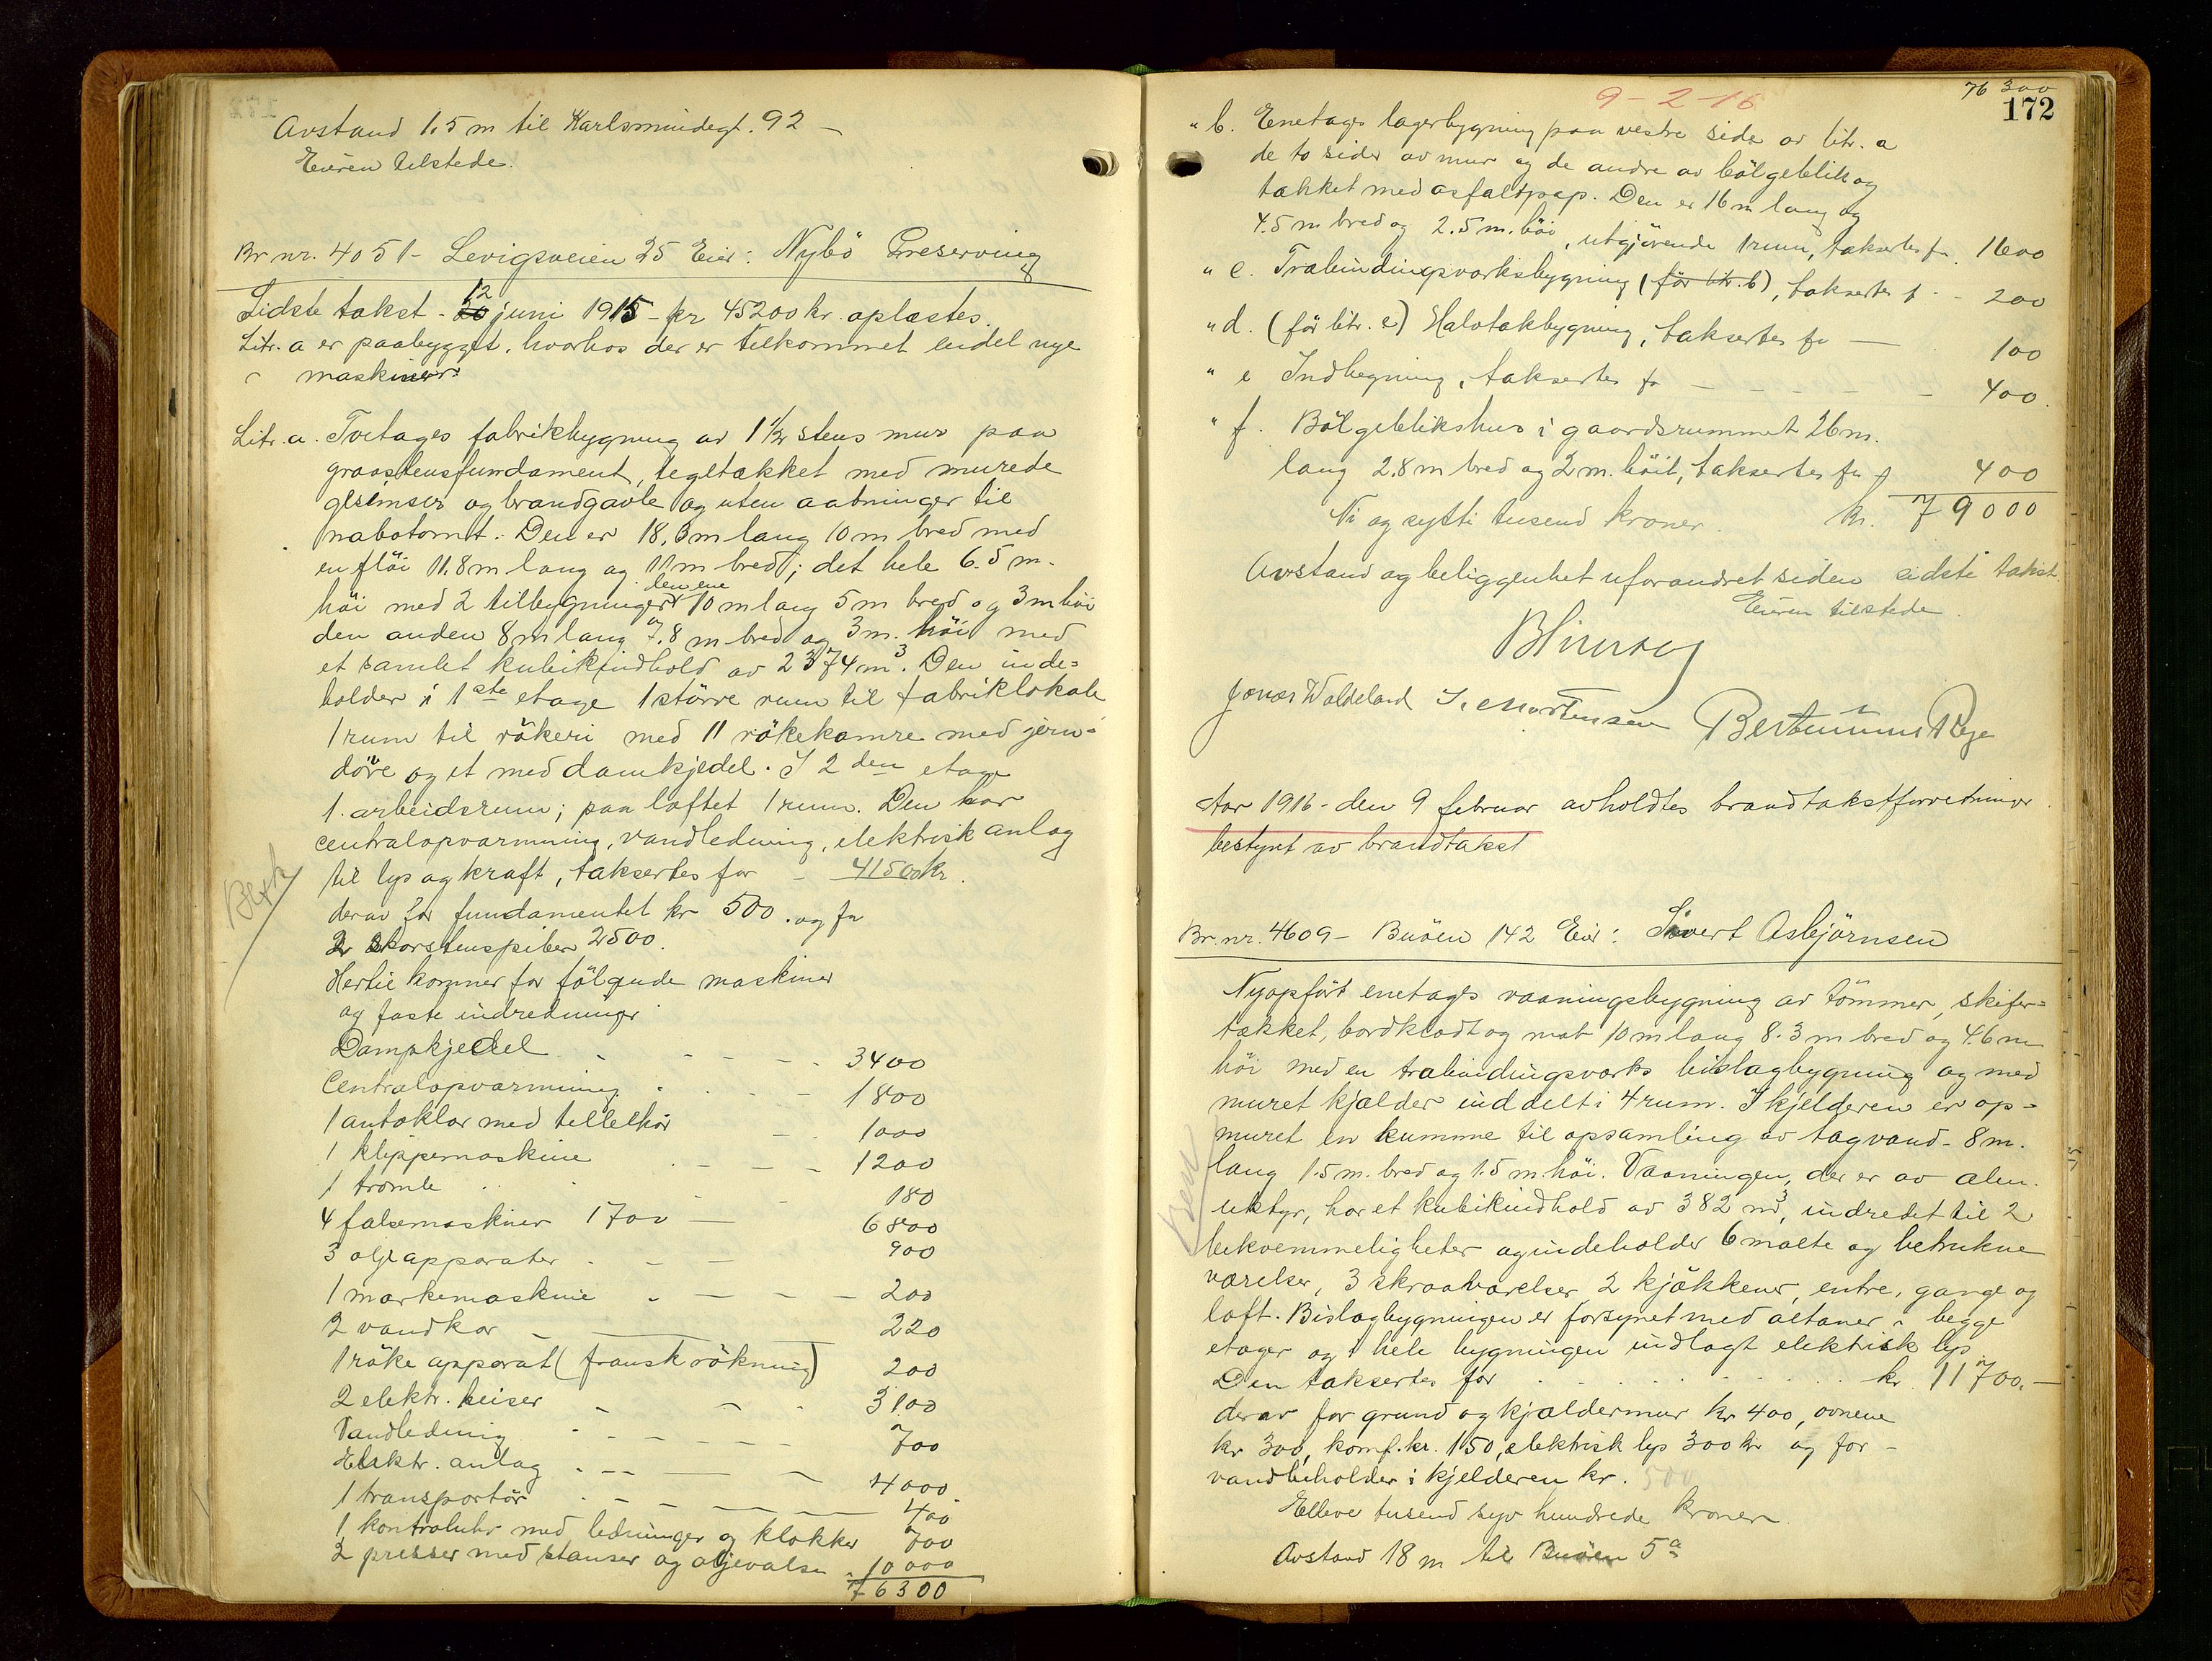 Avstand 1.5 m til Karlsmindegt. 92 –
Eieren tilstede.
Br nr. 4051 – Levigsveien 25 Eier: Nybö Preserving
Sidste takst – 12 juni 1915 – kr 45200 kr. oplæstes.
Litr. a er paabygget, hvorhos der er tilkommet endel nye
" maskiner:
Litr. a. Toetages fabrikbygning av 1 1/2 stens mur paa
graastensfundament, tegltækket med murede
gesimser og brandgavle og uten aabninger til
nabotomt. Den er 18,3 m lang 10 m bred med
en flöi 11.8 m lang og 11 m bred; det hele 6.5 m.
höi med 2 tilbygninger den ene 10 m lang 5 m bred og 3 m höi
den anden 8 m lang 7.8 m bred og 3 m. höi med
et samlet kubikindhold av 2374 m³. Den inde=
holder i 1ste etage 1 större rum til fabriklokale
1 rum til rökeri med 11 rökekamre med jern=
döre og et med damkjedel. I 2den etage
1 arbeidsrum; paa loftet 1 rum. Den har
centralopvarmning, vandledning, elektrisk anlæg
til lys og kraft, taksertes for – 41500 kr.
derav for fundamentet kr 500. og for
2 skorstenspiber 2500.
Hertil kommer for fölgende maskiner
og faste indredninger
Dampkjedel - - - - 3400
Centralopvarmning - - - 1800
1 autoklav med tilbehör - - 1000
1 klippemaskine - - - 1200
1 tromle - - - 180
4 falsemaskiner 1700 — 6800
3 oljeapparater - - - 900
1 markemaskine - - - - 200
2 vandkar - — 220
1 röke apparat (fransk rökning) 200
2 elektr. heiser - - - 3100
Vandledning - - - - - 700
Elektr. anlæg - - - — 4000
1 transportör - - - — 400
1 kontroluhr med ledninger og klokker 700
2 presser med stanser og oljevalse - 10000
76300
76300
172
9-2-16
" b. Enetages lagerbygning paa vestre side av litr. a
de to sider av mur og de andre av bölgeblik og
tækket med asfaltpap. Den er 16 m lang og
4.5 m bred og 2.5 m. höi, utgjörende 1 rum, taksertes fr. 1600
" c. Træbindingsverksbygning (för litr. b), taksertes f - - 200
" d. (för litr. c) Halvtakbygning, taksertes fr — 100
" e Indhegning, taksertes fr - - - - - 400.
" f. Bölgeblikshus i gaardsrummet 26 m.
lang 2.8 m bred og 2 m. höit, taksertes for 400
Ni og sytti tusend kroner. kr. 79000
Avstand og beliggenhet uforandret siden sidste takst.
Eieren tilstede.
Jonas Waldeland T. Mortensen Bertinius Rege
Aar 1916 – den 9 februar avholdtes brandtakstforretninger
bestyret av brandtakst
Br. nr. 4609 – Buöen 142 Eier: Sivert Asbjörnsen
Nyopfört enetages vaaningsbygning av tömmer, skifer=
tækket, bordklædt og malt 10 m lang 8.3 m bred og 4.6 m
höi med en træbindingsverks bislagbygning og med
muret kjælder inddelt i 4 rum. I kjelderen er op=
muret en kumme til opsamling av tagvand – 8 m.
lang 1.5 m. bred og 1.5 m höi. Vaaningen, der er av alm.
utstyr, har et kubikindhold av 382 m³, indredet til 2
bekvemmeligheter og indeholder 6 malte og betrukne
værelser, 3 skraaværelser, 2 kjökkener, entre, gange og
loft. Bislagbygningen er forsynet med altaner i begge
etager og i hele bygningen indlagt elektrisk lys
Den taksertes for - - - - - - - kr. 11700.—
derav for grund og kjældermur kr 400, ovnene
kr 300, komf. kr. 150, elektrisk lys 300 kr og for –
vandbeholder i kjelderen kr. 500
Elleve tusend syv hundrede kroner.
Avstand 18 m til Buöen 5a